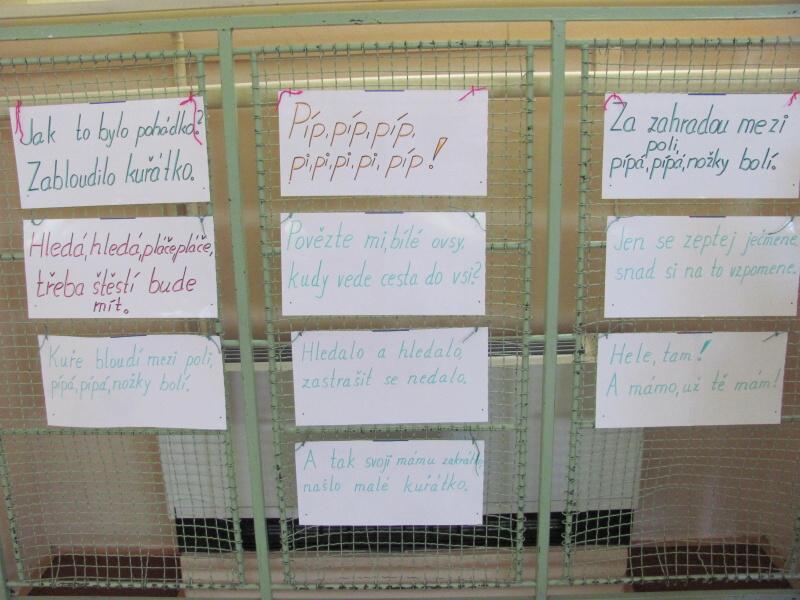 Jak to bylo pohádko?
Zabloudilo kuřátko.
Píp, píp, píp,
pi, pi, pi, pi, píp!
Za zahradou mezi
poli,
pípá, pípá, nožky bolí.
Hledá, hledá, pláče, pláče,
třeba štěstí bude
mít.
Povězte mi, bílé ovsy,
kudy vede cesta do vsi?
Jen se zeptej ječmene,
snad si na to vzpomene.
Kuře bloudí mezi poli,
pípá, pípá, nožky bolí.
Hledalo a hledalo,
zastrašit se nedalo.
Hele, tam!
A mámo, už tě mám!
A tak svoji mámu zakrátko
našlo malé kuřátko.